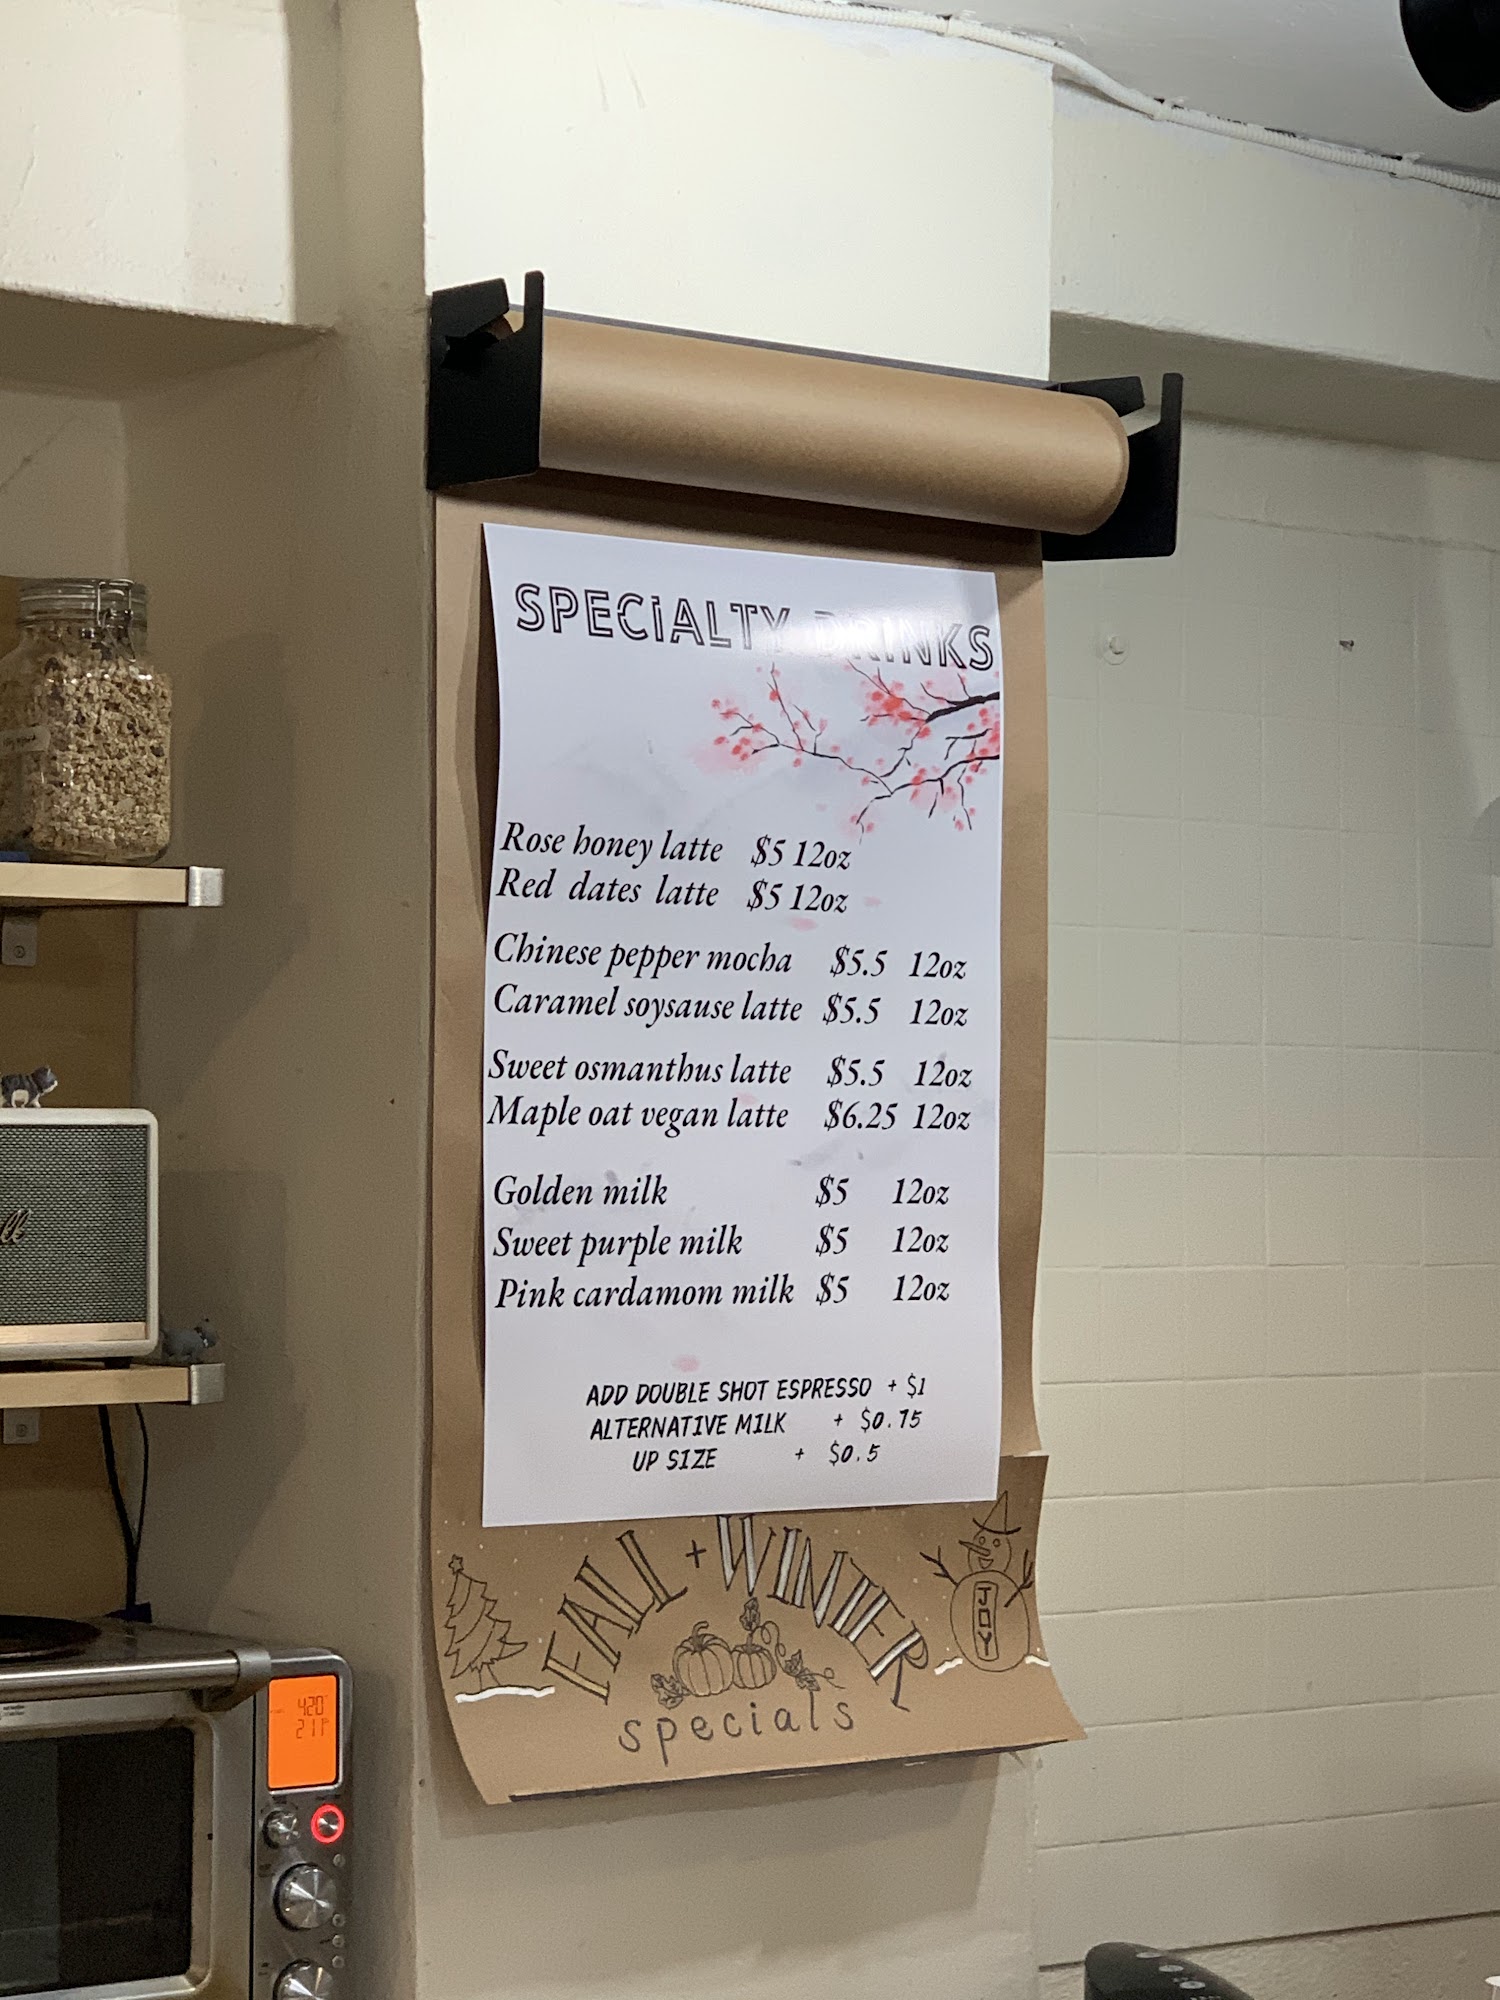 SPECIALTY DRINKS
Rose honey latte $5 12oz
Red dates latte $5 12oz
Chinese pepper mocha $5.5 12oz
Caramel soysause latte $5.5 12oz
Sweet osmanthus latte $5.5 12oz
Maple oat vegan latte $6.25 12oz
Golden milk $5 12oz
Sweet purple milk $5 12oz
Pink cardamom milk $5 12oz
ADD DOUBLE SHOT ESPRESSO + $1
ALTERNATIVE MILK + $0.75
UP SIZE + $0.5
FALL + WINTER
JOY
specials
420
211